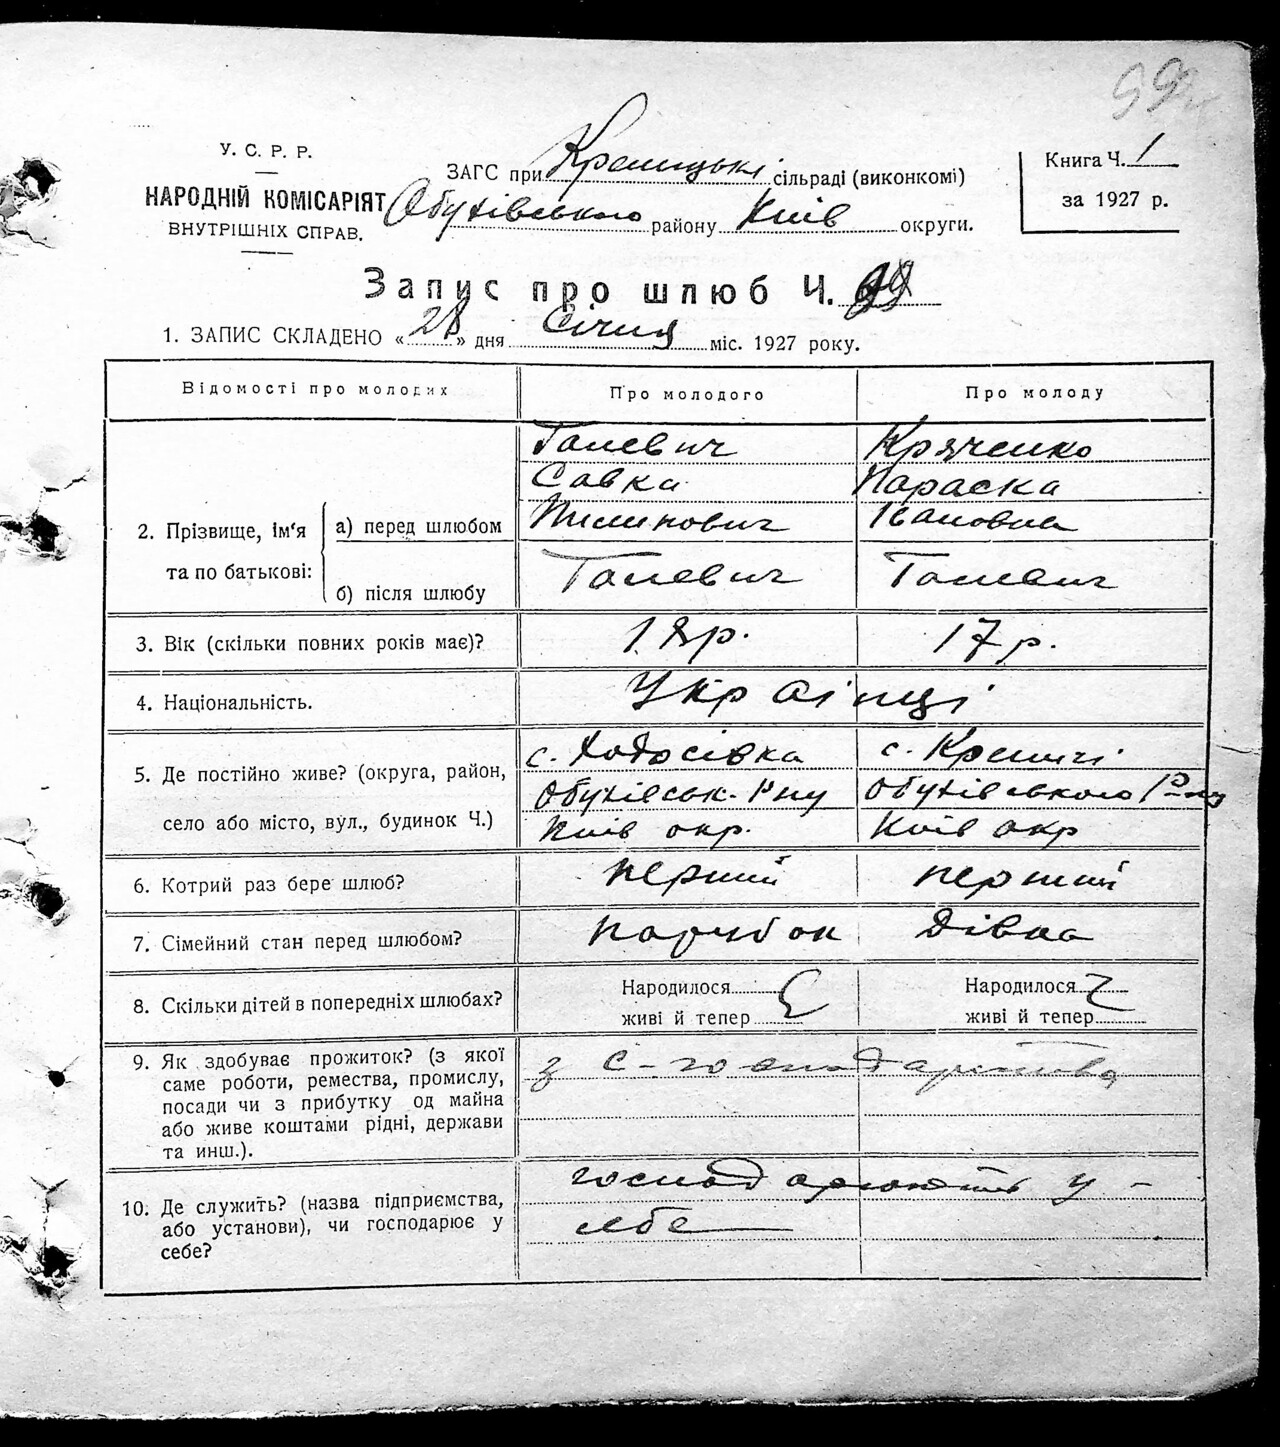 99
У. С. Р. Р.
НАРОДНІЙ КОМІСАРІЯТ
ВНУТРІШНІХ СПРАВ.
ЗАГС при Креницькі сільраді (виконкомі)
Обухівського району Київ округи.
Книга Ч. 1
за 1927 р.
Запис про шлюб Ч. 99
1. ЗАПИС СКЛАДЕНО «28» дня Січня міс. 1927 року.
Відомості про молодих Про молодого Про молоду
2. Прізвище, ім‘я та по батькові:
а) перед шлюбом
Галевич Кряченко
Савка Параска
Пилипович Івановна
б) після шлюбу Галевич Галевич
3. Вік (скільки повних років має)? 18р. 17 р.
4. Національність. Українці
5. Де постійно живе? (округа, район,
село або місто, вул., будинок Ч.)
с. Ходосівка с. Креничі
Обухівськ. Р-ну Обухівського Р-ну
Київ окр. Київ окр
6. Котрий раз бере шлюб? перший перший
7. Сімейний стан перед шлюбом? парубок дівка
8. Скільки дітей в попередніх шлюбах? Народилося Народилося
живі й тепер живі й тепер
9. Як здобуває прожиток? (з якої
саме роботи, ремества, промислу,
посади чи з прибутку од майна
або живе коштами рідні, держави
та инш.).
з с-господарства
10. Де служить? (назва підприємства,
або установи), чи господарює у
себе?
господарюють у -
себе